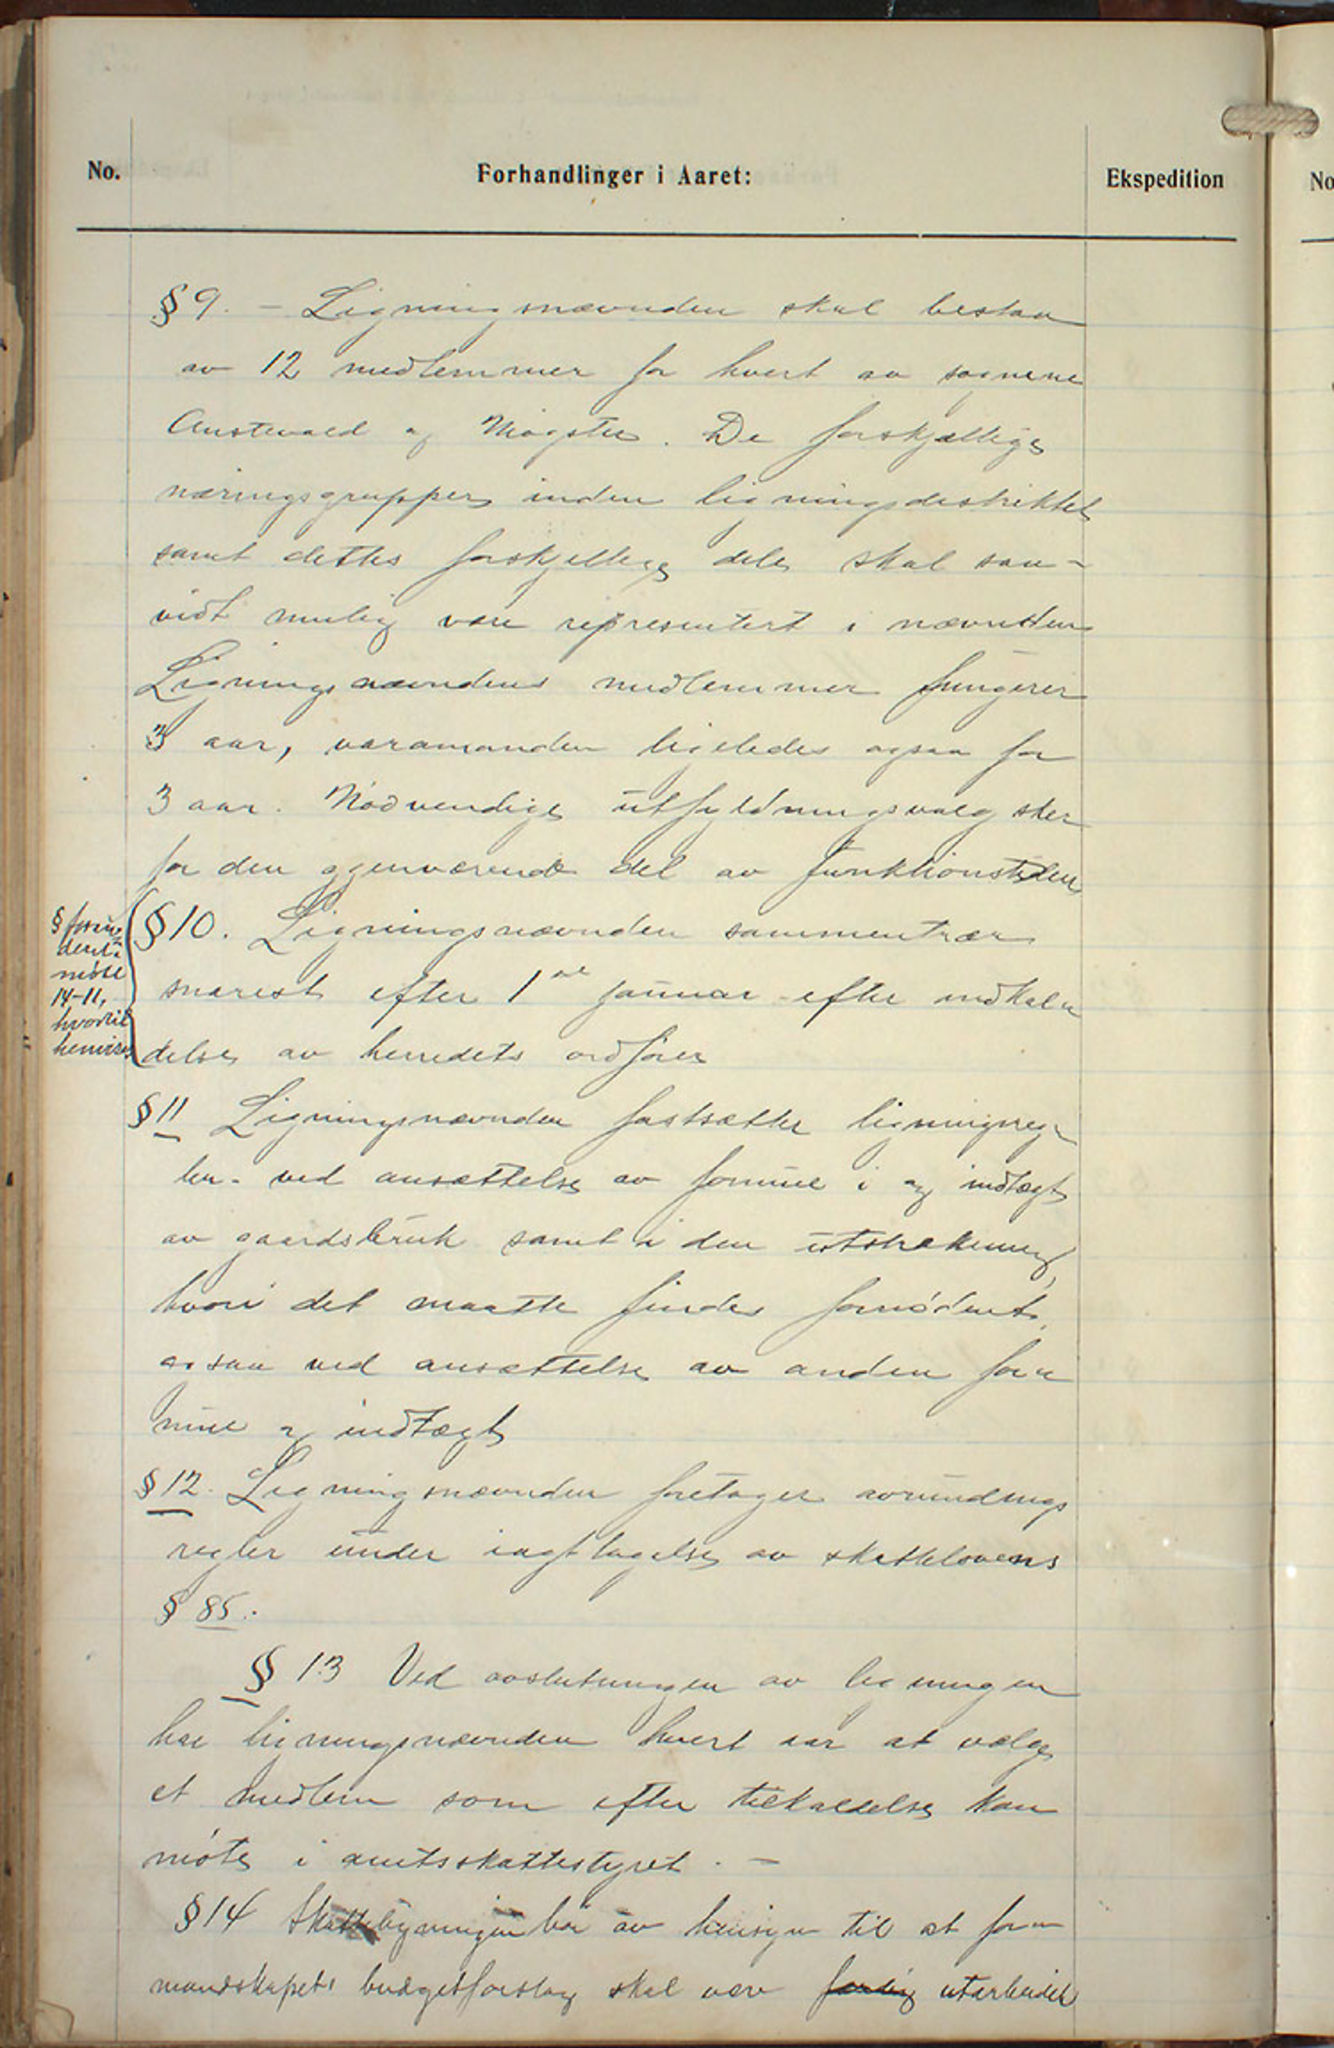 No.
Forhandlinger i Aaret:
Ekspedition
No
§ 9. - Ligningsnævnden skal bestaa
av 12 medlemmer for hvert av sognene
Austevold og Møgster. De forskjællige
næringsgrupper inden ligningsdistriktet
samt dettes forskjellige dele skal saa-
vidt mulig være repræsentert i nævnden
Ligningsnævndens medlemmer fungerer
3 aar, varamænden ligeledes ogsaa for
3 aar. Nødvendige utfyldningsvalg sker
for den gjenværende del av funktionstiden
§ 10. Ligningsnævnden sammentræer
snarest efter 1ste januar efter indkal-
delse av herredets ordfører
§ foran-
dret i
møte
14-11,
hvortil
henvises
§ 11 Ligningsnævnden fastsætter ligningsreg-
ler ved ansættelse av formue i og indtægt
av gaardsbruk samt i den utstrækning,
hvori det maatte findes fornødent,
ogsaa ved ansættelse av anden for-
mue og indtægt
§ 12. Ligningsnævnden foretager avrundings
regler under iagttagelse av skattelovens
§ 85.
§ 13 Ved avslutningen av ligningen
har ligningsnævnden hvert aar at vælge
et medlem som efter tilkaldelse kan
møte i amtsskattestyret. -
§ 14 Skatteligningen bør av hensyn til at for-
mandskapets budgetforslag skal være færdig utarbeidet